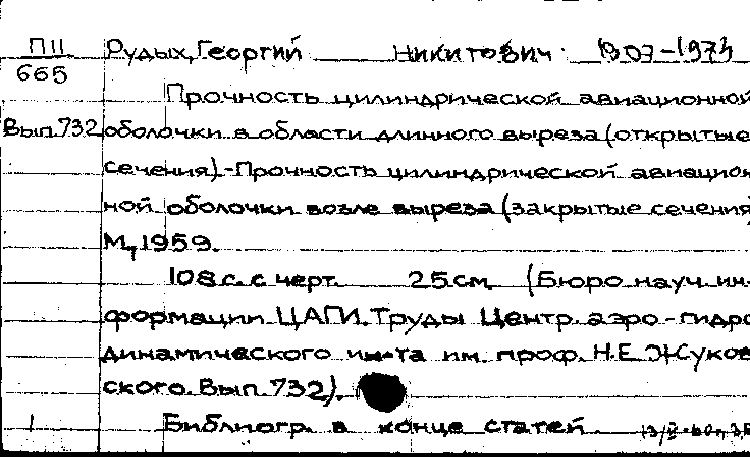 П11 Рудых, Георгий Никитович. 1907-1973
665
Прочность цилиндрической авиационной
Вып.732 оболочки в области длинного выреза (открытые
сечения).-Прочность цилиндрической авиацион
ной оболочки возле выреза (закрытые сечения)
М., 1959.
108 с. с черт. 25 см. (Бюро науч. ин-
формации ЦАГИ. Труды Центр. аэро-гидро
динамического ин-та им. проф. Н.Е. Жуков
ского. Вып. 732).
1 Библиогр. в конце статей.